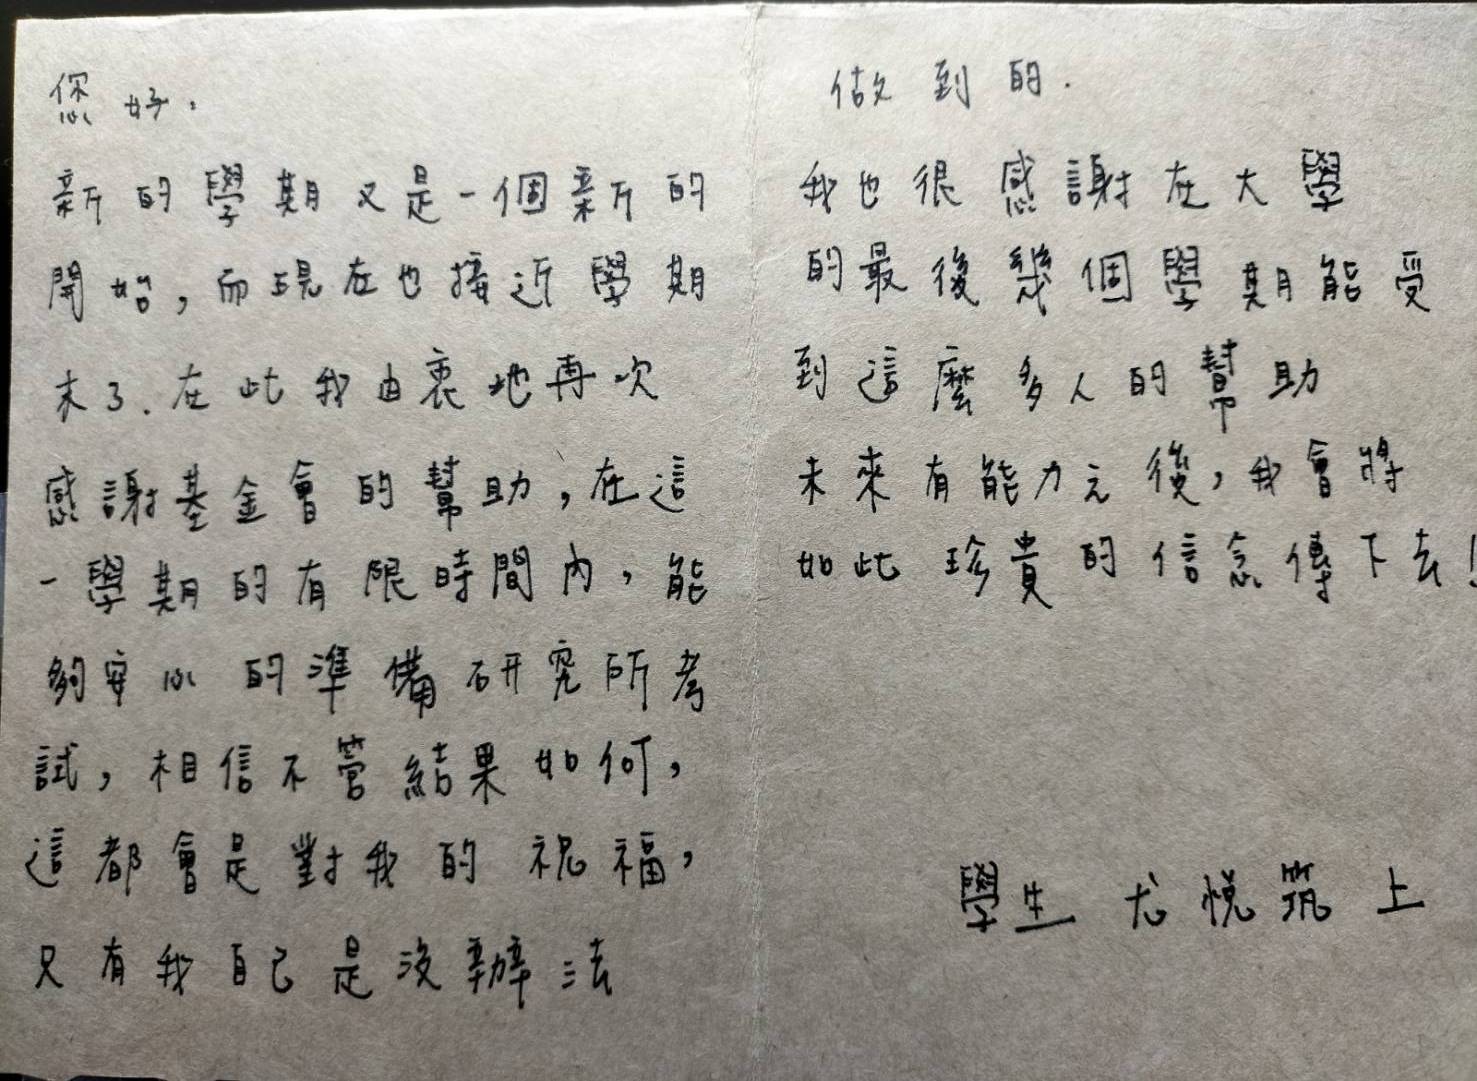 您好，
新的學期又是一個新的
開始，而現在也接近學期
末了.在此我由衷地再次
感謝基金會的幫助，在這
一學期的有限時間內，能
夠安心的準備研究所考
試，相信不管結果如何，
這都會是對我的祝福，
只有我自己是沒辦法
做到的.
我也很感謝在大學
的最後幾個學期能受
到這麼多人的幫助
未來有能力之後，我會將
如此珍貴的信念傳下去！
學生 尤悅筑 上